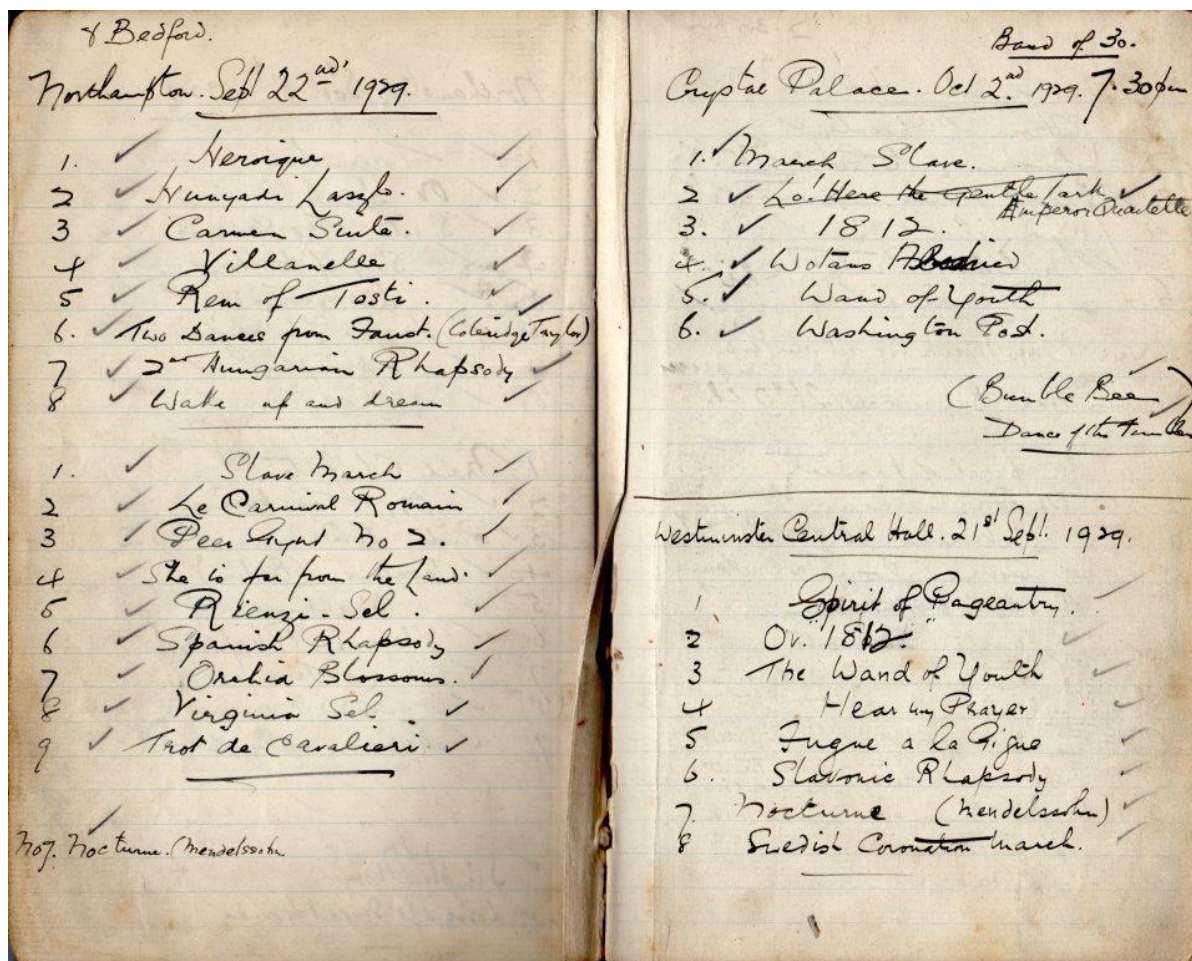 & Bedford.
Northampton. Sept 22nd 1929.
1. Heroique
2 Hunyadi Laszlo.
3 Carmen Suite.
4 Villanelle
5 Rem of Tosti.
6. Two Dances from Faust. (Coleridge Taylor)
7 2nd Hungarian Rhapsody
8 Wake up and dream
1. Slave March
2 Le Carnival Romain
3 Peer Gynt No 2.
4 She is far from the Land.
5 Rienzi - Sel.
6 Spanish Rhapsody
7 Orchid Blossoms.
8 Virginia Sel.
9 Trot de Cavalieri
No 7. Nocturne. (Mendelssohn
Band of 30.
Crystal Palace. Oct 2nd. 1929. 7.30pm
1. March Slave.
2 Lo! Here the Gentle Lark
Emperor Quartette
3. 1812.
4. Wotans
5. Wand of Youth
6. Washington Post.
(Bumble Bee)
Dance of the Tumblers
Westminster Central Hall. 21st Sept. 1929.
1 Spirit of Pageantry.
2 Ov. "1812."
3 The Wand of Youth
4 Hear my Prayer
5 Fugue a la Gigue
6. Slavonic Rhapsody
7. Nocturne (Mendelssohn)
8 Swedish Coronation March.